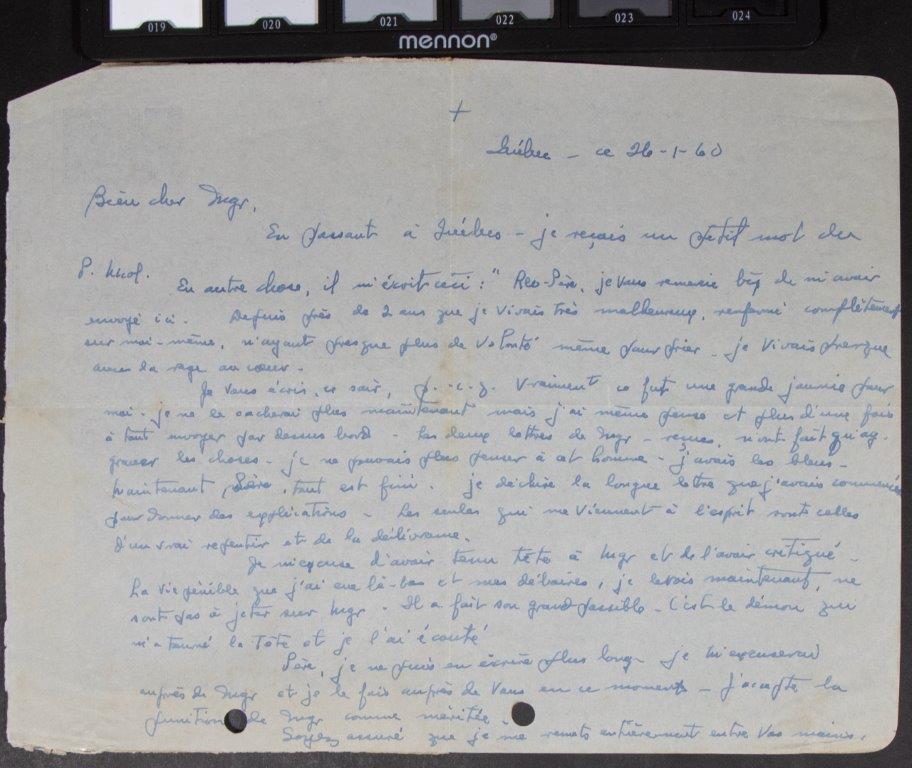 019 020 021 022 023 024
mennon®
+
Québec - ce 26-1-60
Bien cher Mgr,
En passant à Québec - je reçois un petit mot du
P.
En autre chose, il m'écrit ceci : " Rev-Père, je vous remercie bcp de m'avoir
envoyé ici. Depuis près de 2 ans que je vivais très malheureux, renfermé complètement
sur moi-même, n'ayant presque plus de volonté même pour prier - je vivais presque
avec la rage au coeur.
Je vous écris, ce soir, Vraiment ce fut une grande journée pour
moi. je ne le cacherai plus maintenant mais j'ai même pensé et plus d'une fois
à tout envoyer par dessus bord - Les deux lettres de Mgr - reçues, n'ont fait qu'ag-
graver les choses. je ne pouvais plus penser à cet homme - j'avais les bleus -
Maintenant Père, tout est fini. je déchire la longue lettre que j'avais commencée
pour donner des explications - Les seules qui me viennent à l'esprit sont celles
d'un vrai repentir et de la délivrance.
Je m'excuse d'avoir tenu tête à Mgr et de l'avoir critiqué -
La vie pénible que j'ai eue là-bas et mes déboires, je le vois maintenant, ne
sont pas à jeter sur Mgr. Il a fait son grand possible - C'est le démon qui
m'a tourné la tête et je l'ai écouté
Père, je ne puis en écrire plus long - je m'excuserai
auprès de Mgr et je le fais auprès de vous en ce moment - J'accepte la
punition de Mgr comme méritée.
Soyez assuré que je me remets entièrement entre vos mains.